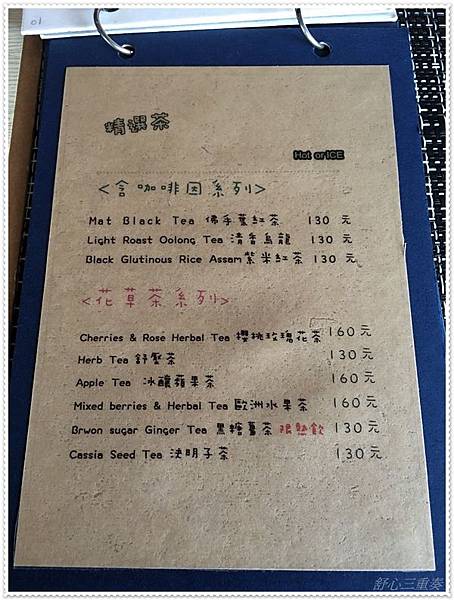 01
精選茶
Hot or ICE
<含咖啡因系列>
Mat Black Tea 佛手葉紅茶 130 元
Light Roast Oolong Tea 清香烏龍 130 元
Black Glutinous Rice Assam 紫米紅茶 130 元
<花草茶系列>
Cherries & Rose Herbal Tea 櫻桃玫瑰花茶 160元
Herb Tea 舒壓茶 130元
Apple Tea 冰釀蘋果茶 160元
Mixed berries & Herbal Tea 歐洲水果茶 160元
Brwon sugar Ginger Tea 黑糖薑茶 限熱飲 130元
Cassia Seed Tea 決明子茶 130元
舒心三重奏